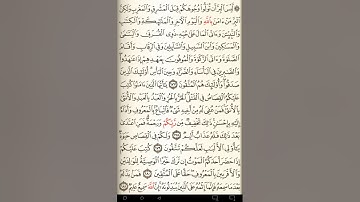 ۞ لَّيْسَ ٱلْبِرَّ أَن تُوَلُّوا۟ وُجُوهَكُمْ قِبَلَ ٱلْمَشْرِقِ وَٱلْمَغْرِبِ وَلَٰكِنَّ
ٱلْبِرَّ مَنْ ءَامَنَ بِٱللَّهِ وَٱلْيَوْمِ ٱلْءَاخِرِ وَٱلْمَلَٰٓئِكَةِ وَٱلْكِتَٰبِ
وَٱلنَّبِيِّـۧنَ وَءَاتَى ٱلْمَالَ عَلَىٰ حُبِّهِۦ ذَوِى ٱلْقُرْبَىٰ وَٱلْيَتَٰمَىٰ
وَٱلْمَسَٰكِينَ وَٱبْنَ ٱلسَّبِيلِ وَٱلسَّآئِلِينَ وَفِى ٱلرِّقَابِ وَأَقَامَ
ٱلصَّلَوٰةَ وَءَاتَى ٱلزَّكَوٰةَ وَٱلْمُوفُونَ بِعَهْدِهِمْ إِذَا عَٰهَدُوا۟
وَٱلصَّٰبِرِينَ فِى ٱلْبَأْسَآءِ وَٱلضَّرَّآءِ وَحِينَ ٱلْبَأْسِ أُو۟لَٰٓئِكَ ٱلَّذِينَ
صَدَقُوا۟ وَأُو۟لَٰٓئِكَ هُمُ ٱلْمُتَّقُونَ ١٧٧ يَٰٓأَيُّهَا ٱلَّذِينَ ءَامَنُوا۟ كُتِبَ
عَلَيْكُمُ ٱلْقِصَاصُ فِى ٱلْقَتْلَى ٱلْحُرُّ بِٱلْحُرِّ وَٱلْعَبْدُ بِٱلْعَبْدِ وَٱلْأُنثَىٰ
بِٱلْأُنثَىٰ فَمَنْ عُفِىَ لَهُۥ مِنْ أَخِيهِ شَىْءٌ فَٱتِّبَاعٌۢ بِٱلْمَعْرُوفِ وَأَدَآءٌ
إِلَيْهِ بِإِحْسَٰنٍ ذَٰلِكَ تَخْفِيفٌ مِّن رَّبِّكُمْ وَرَحْمَةٌ فَمَنِ ٱعْتَدَىٰ
بَعْدَ ذَٰلِكَ فَلَهُۥ عَذَابٌ أَلِيمٌ ١٧٨ وَلَكُمْ فِى ٱلْقِصَاصِ حَيَوٰةٌ
يَٰٓأُو۟لِى ٱلْأَلْبَٰبِ لَعَلَّكُمْ تَتَّقُونَ ١٧٩ كُتِبَ عَلَيْكُمْ
إِذَا حَضَرَ أَحَدَكُمُ ٱلْمَوْتُ إِن تَرَكَ خَيْرًا ٱلْوَصِيَّةُ لِلْوَٰلِدَيْنِ
وَٱلْأَقْرَبِينَ بِٱلْمَعْرُوفِ حَقًّا عَلَى ٱلْمُتَّقِينَ ١٨٠ فَمَنۢ بَدَّلَهُۥ
بَعْدَ مَا سَمِعَهُۥ فَإِنَّمَآ إِثْمُهُۥ عَلَى ٱلَّذِينَ يُبَدِّلُونَهُۥٓ إِنَّ ٱللَّهَ سَمِيعٌ عَلِيمٌ ١٨١